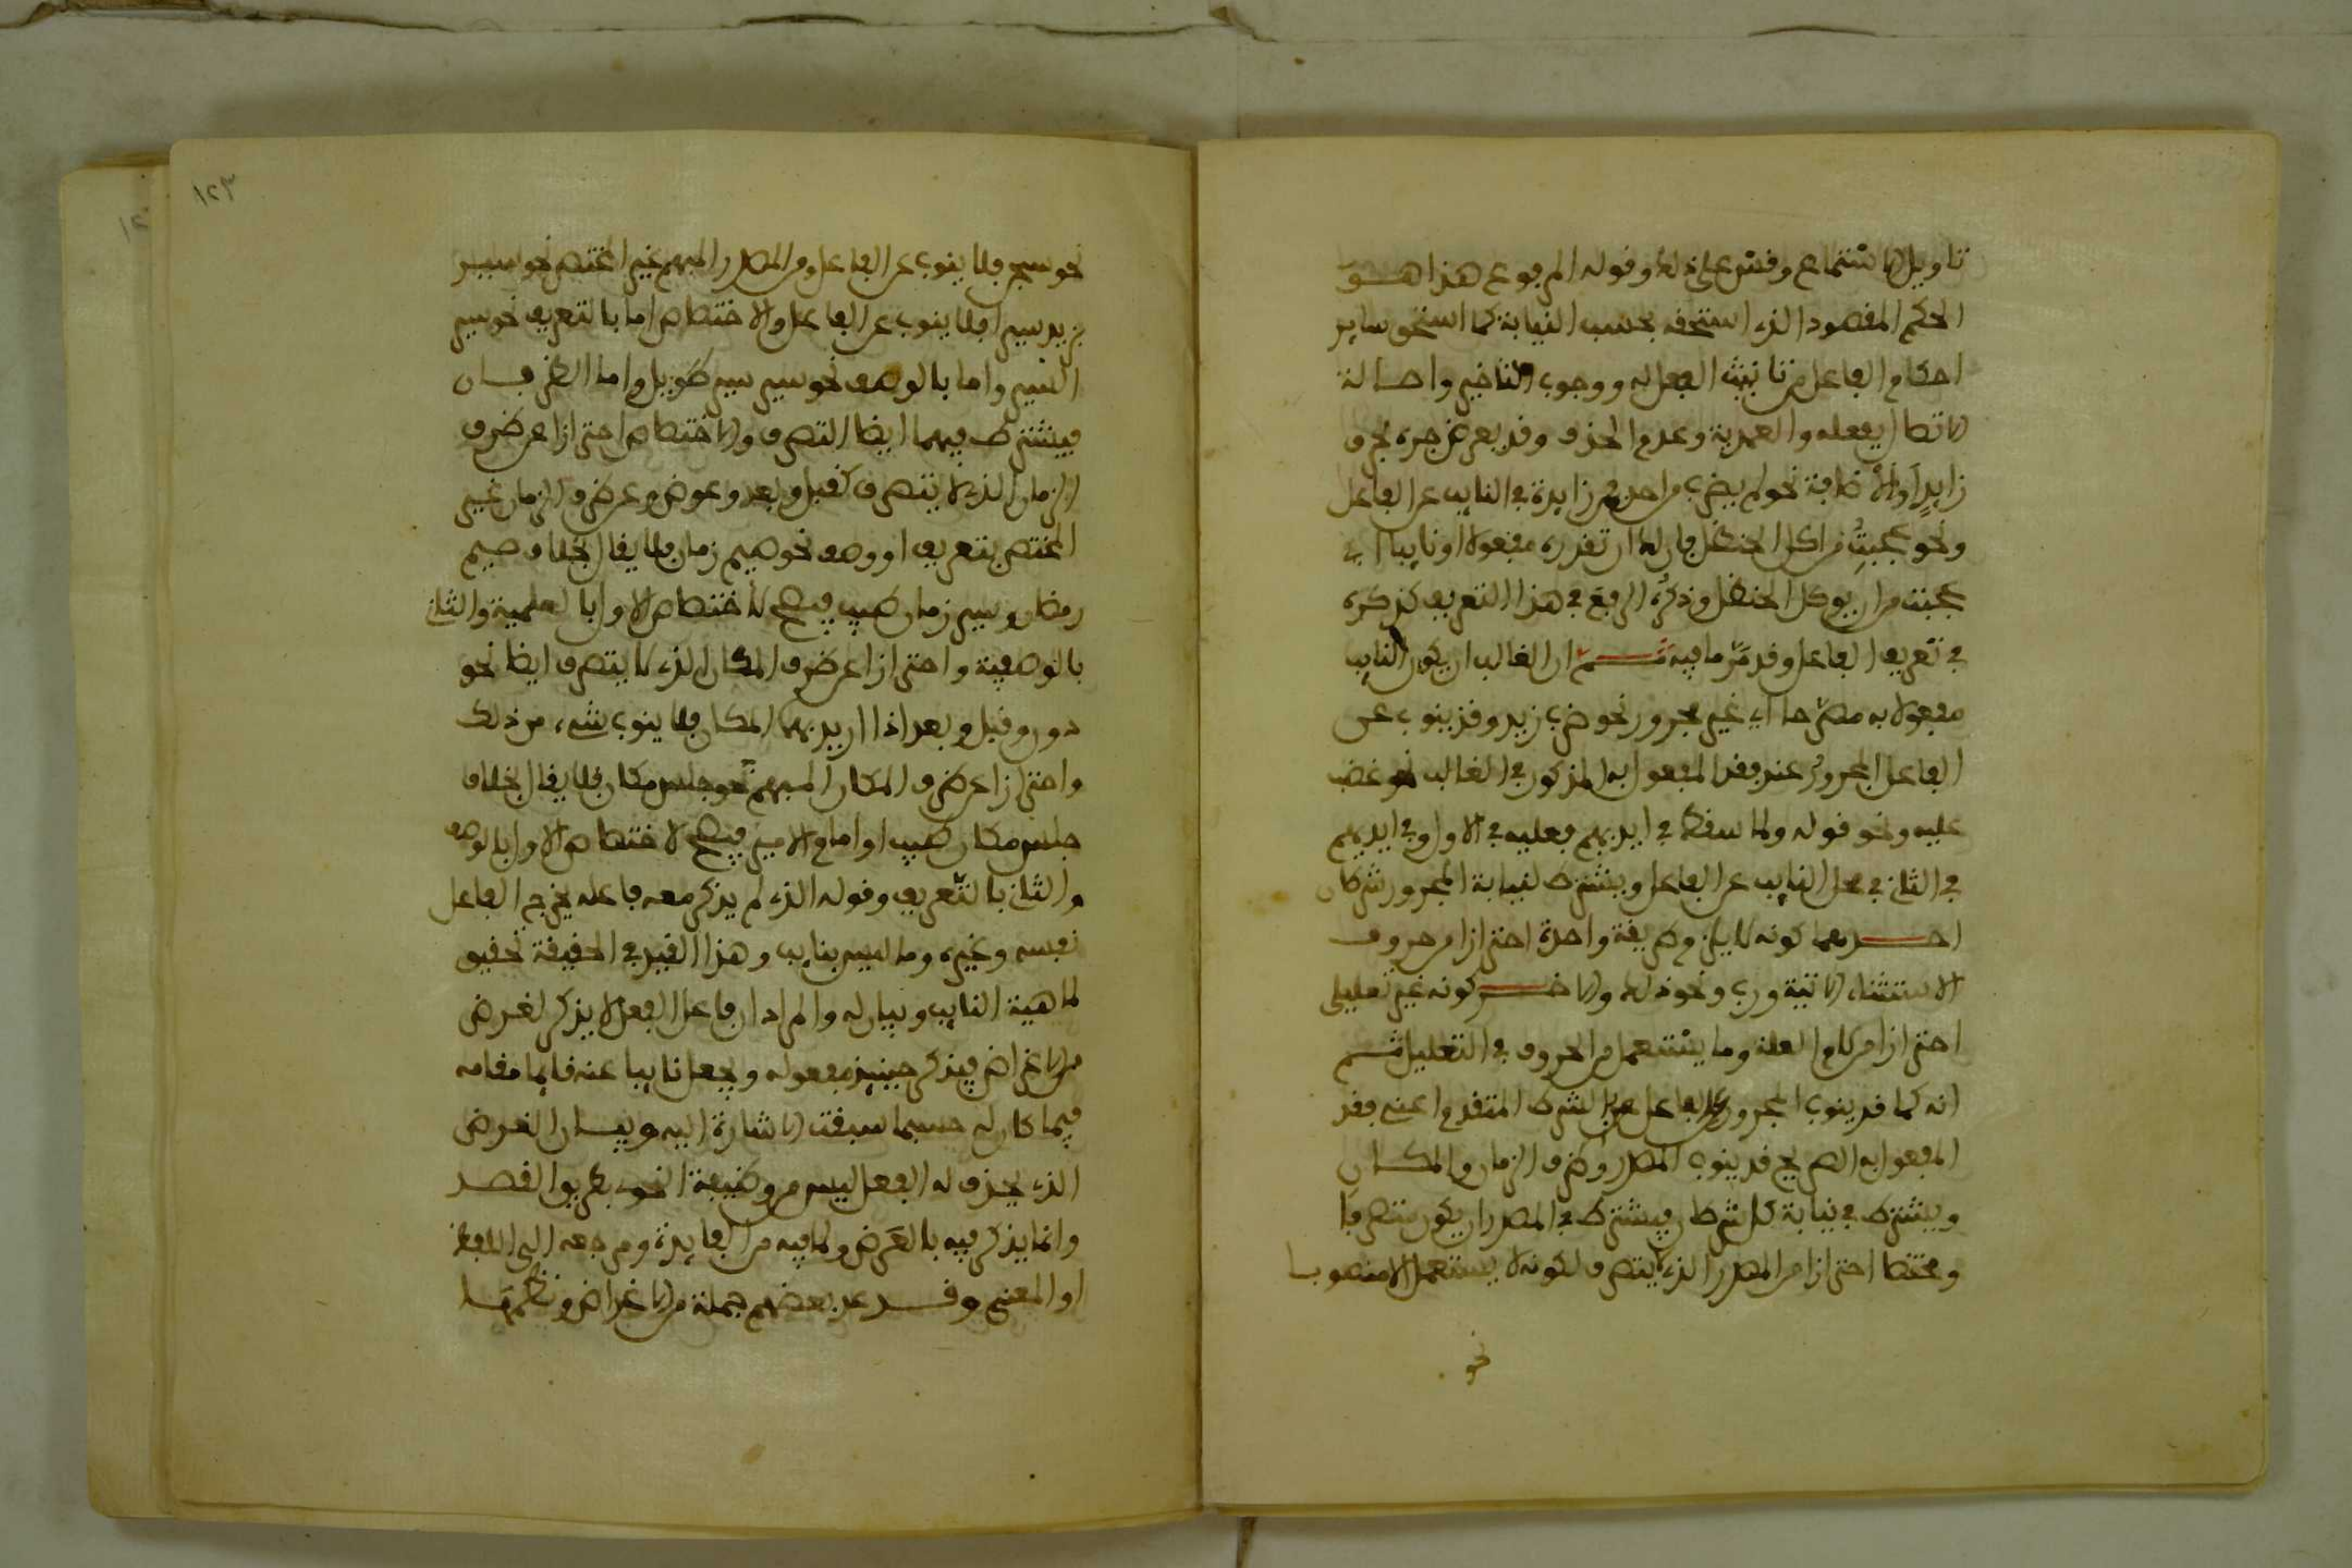 تاويل الاستماع وقس على ذلك وقوله المرفوع هذا هو
الحكم المقصود الذي استحقه بحسب النيابة كما استحق ساير
احكام الفاعل من تانيث الفعل له ووجوب التاخير واصالة
الاتصال بفعله والعمدية وعدم الحذف وقد يعرض جره بحرف
زايدٍ او لاضافة نحو لم يضرب من احد فمن زايدة في النايب عن الفاعل
ونحو عجبت من اكل الحنظل فان لك ان تقدره مفعولا او نايبا اي
عجبت من ان يوكل الحنظل وذكره الرفع في هذا التعريف كذكره
في تعريف الفاعل وقد مر ما فيه ثم ان الغالب ان يكون النايب
مفعولا به مصرحا اي غير مجرور نحو ضرب زيد وقد ينوب عن
الفاعل المجرور عند فقد المفعول به المذكور في الغالب نحو غضب
عليه ونحو قوله ولما سقط في ايديهم فعليه في الاول وفي ايديهم
في الثاني في محل النايب عن الفاعل ويشترط لنيابة المجرور شرطان
احدهما كونه لا يلزم طريقة واحدة احترازا من حروف
الاستثناء الاتية ورب ونحو ذلك والاخر كونه غير تعليلي
احترازا من لام العلة وما يستعمل من الحروف في التعليل ثم
انه كما قد ينوب المجرور عن الفاعل بالشرط المتقدم اعني فقد
المفعول به الصريح قد ينوب المصدر وظرف الزمان والمكان
ويشترط في نيابة كل شرطان فيشترط في المصدر ان يكون متصرفا
ومختصا احترازا من المصدر الذي لا يتصرف لكونه لا يستعمل الا منصوبا
نحو
١٢٣
نحو سبح فلا ينوب عن الفاعل ومن المصدر المبهم غير المختص نحو سير
بزيد سيرا فلا ينوب عن الفاعل والاختصاص اما بالتعريف نحو سير
السير واما بالوصف نحو سير سير طويل واما الظرفان
فيشترط فيهما ايضا التصرف والاختصاص احترازا عن ظرف
الزمان الذي لا يتصرف كقبل وبعد وعوض وعن ظرف الزمان غير
المختص بتعريف او وصف نحو صيم زمان فلا يقال بخلاف صيم
رمضان وسير زمان طيب فيصح للاختصاص الاول بالعلمية والثاني
بالوصفية واحترازا عن ظرف المكان الذي لا يتصرف ايضا نحو
دون وقبل وبعد اذا اريد بهما المكان فلا ينوب شيء من ذلك
واحترازا عن ظرف المكان المبهم نحو جلس مكان فلا يقال بخلاف
جلس مكان طيب او امام الامير فيصح لاختصاص الاول بالوصف
والثاني بالتعريف وقوله الذي لم يذكر معه فاعله يخرج الفاعل
نفسه وغيره وما ليس بنايب وهذا القيد في الحقيقة تحقيق
لماهية النايب وبيان له والمراد ان فاعل الفعل لا يذكر لغرض
من الاغراض فيذكر حينيذ مفعوله ويجعل نايبا عنه قايما مقامه
فيما كان له حسبما سبقت الاشارة اليه وبيان الغرض
الذي يحذف له الفعل ليس من وظيفة النحوي بطريق القصد
وانما يذكر فيه بالعَرَض ولما فيه من الفايدة ومرجعه الى اللفظ
او المعنى وقد عد بعضهم جملة من الاغراض ونظمها